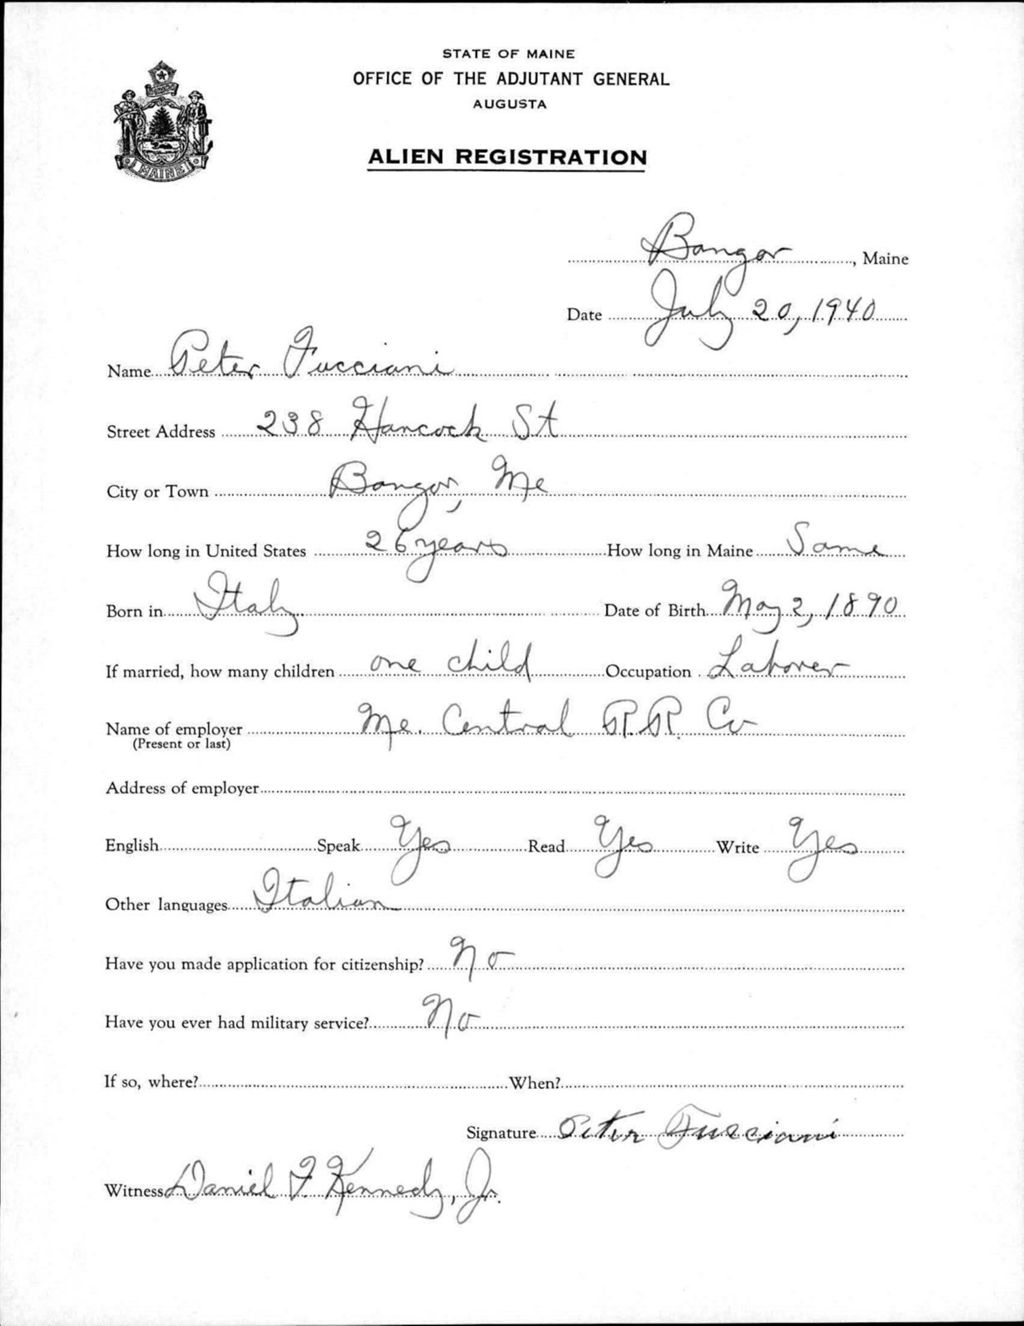 STATE OF MAINE
OFFICE OF THE ADJUTANT GENERAL
AUGUSTA
ALIEN REGISTRATION
MAINE
Bangor, Maine
Date July 20, 1940
Name Peter Fucciani
Street Address 238 Hancock St
City or Town Bangor, Me
How long in United States 26 years How long in Maine Same
Born in Italy. Date of Birth May 2, 1890
If married, how many children one child Occupation Laborer
Name of employer Me. Central R.R. Co
(Present or last)
Address of employer
English Speak Yes Read Yes Write Yes
Other languages Italian
Have you made application for citizenship? No
Have you ever had military service? No
If so, where? When?
Signature Peter Fucciani
Witness Daniel F Kennedy, Jr.